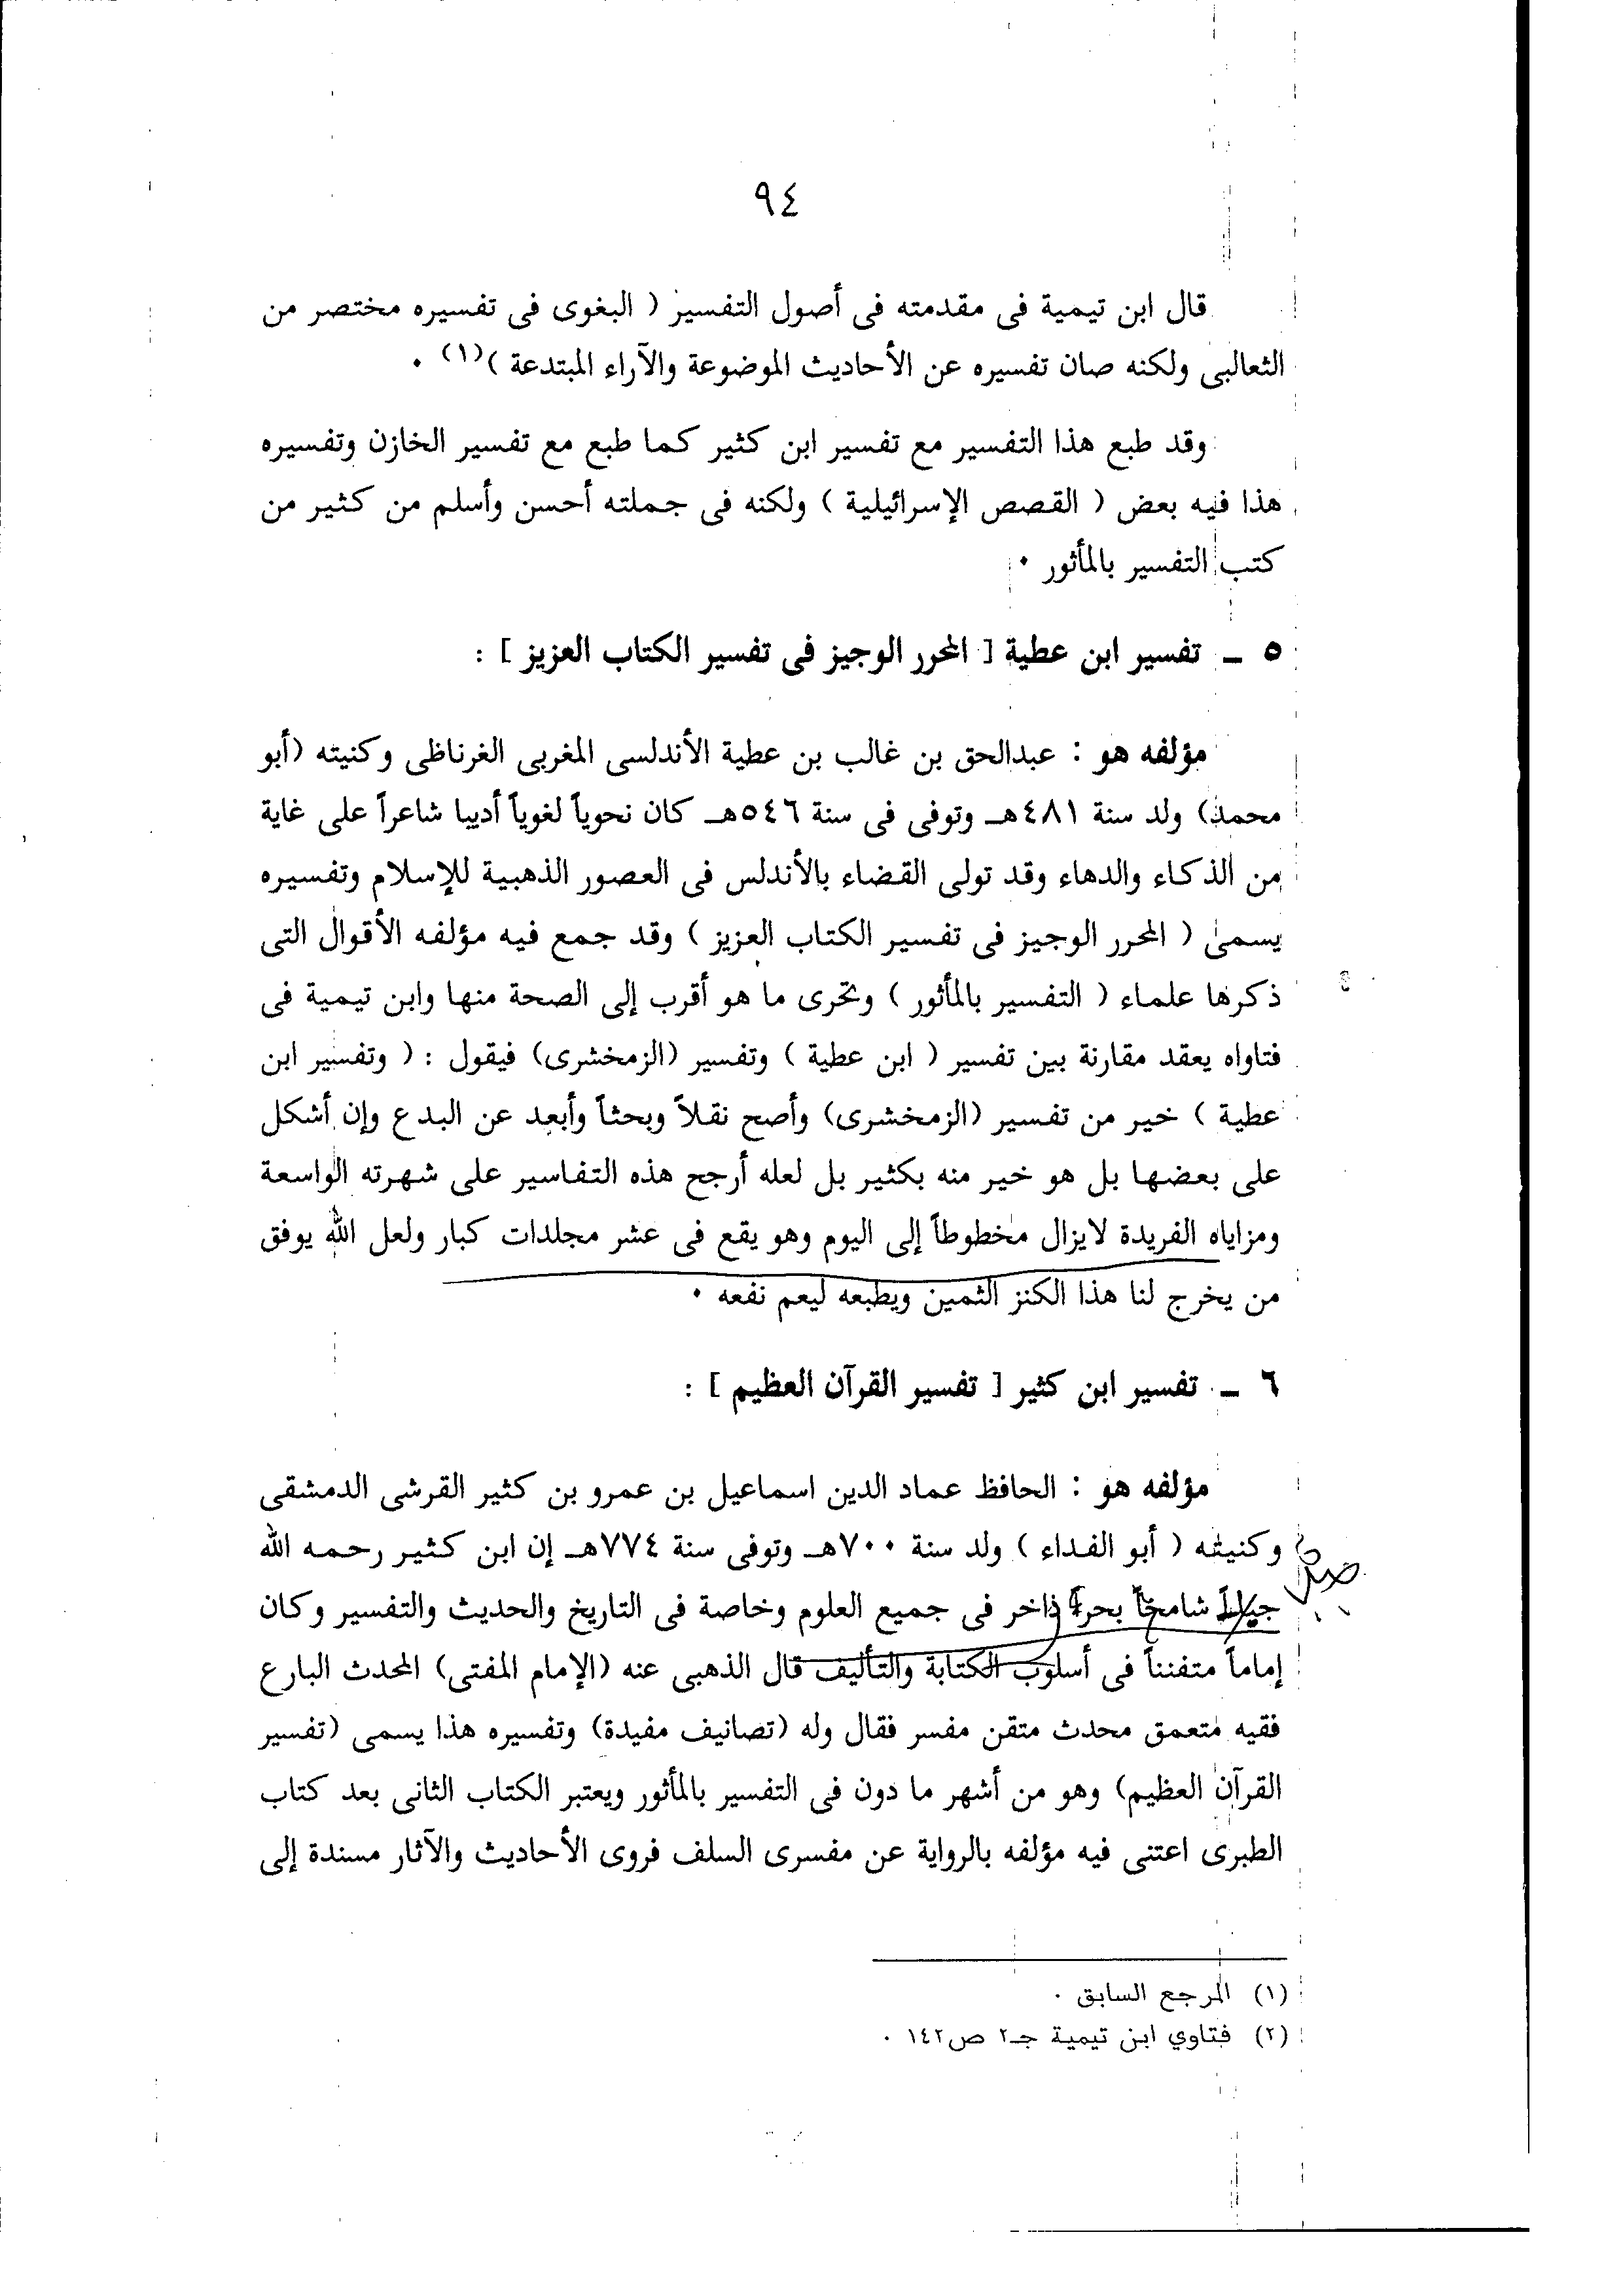 ٩٤
قال ابن تيمية فى مقدمته فى أصول التفسير ( البغوى فى تفسيره مختصر من
الثعالبى ولكنه صان تفسيره عن الأحاديث الموضوعة والآراء المبتدعة )(١) .
وقد طبع هذا التفسير مع تفسير ابن كثير كما طبع مع تفسير الخازن وتفسيره
هذا فيه بعض ( القصص الإسرائيلية ) ولكنه فى جملته أحسن وأسلم من كثير من
كتب التفسير بالمأثور .
٥ ـ تفسير ابن عطية [ المحرر الوجيز فى تفسير الكتاب العزيز ] :
مؤلفه هو : عبدالحق بن غالب بن عطية الأندلسى المغربى الغرناظى وكنيته (أبو
محمد) ولد سنة ٤٨١هـ وتوفى فى سنة ٥٤٦هـ كان نحوياً لغوياً أديبا شاعراً على غاية
من الذكاء والدهاء وقد تولى القضاء بالأندلس فى العصور الذهبية للإسلام وتفسيره
يسمى ( المحرر الوجيز فى تفسير الكتاب العزيز ) وقد جمع فيه مؤلفه الأقوال التى
ذكرها علماء ( التفسير بالمأثور ) وتحرى ما هو أقرب إلى الصحة منها وابن تيمية فى
فتاواه يعقد مقارنة بين تفسير ( ابن عطية ) وتفسير (الزمخشرى) فيقول : ( وتفسير ابن
عطية ) خير من تفسير (الزمخشرى) وأصح نقلاً وبحثاً وأبعد عن البدع وإن أشكل
على بعضها بل هو خير منه بكثير بل لعله أرجح هذه التفاسير على شهرته الواسعة
ومزاياه الفريدة لايزال مخطوطاً إلى اليوم وهو يقع فى عشر مجلدات كبار ولعل الله يوفق
من يخرج لنا هذا الكنز الثمين ويطبعه ليعم نفعه .
٦ ـ تفسير ابن كثير [ تفسير القرآن العظيم ] :
مؤلفه هو : الحافظ عماد الدين اسماعيل بن عمرو بن كثير القرشى الدمشقى
وكنيته ( أبو الفداء ) ولد سنة ٧٠٠هـ وتوفى سنة ٧٧٤هـ إن ابن كثير رحمه الله
شامخاً بحراً ذاخر فى جميع العلوم وخاصة فى التاريخ والحديث والتفسير وكان
إماماً متفنناً فى أسلوب الكتابة والتأليف قال الذهبى عنه (الإمام المفتى) المحدث البارع
فقيه متعمق محدث متقن مفسر فقال وله (تصانيف مفيدة) وتفسيره هذا يسمى (تفسير
القرآن العظيم) وهو من أشهر ما دون فى التفسير بالمأثور ويعتبر الكتاب الثانى بعد كتاب
الطبرى اعتنى فيه مؤلفه بالرواية عن مفسرى السلف فروى الأحاديث والآثار مسندة إلى
(١) المرجع السابق .
(٢) فتاوي ابن تيمية جـ٢ ص١٤٢ .